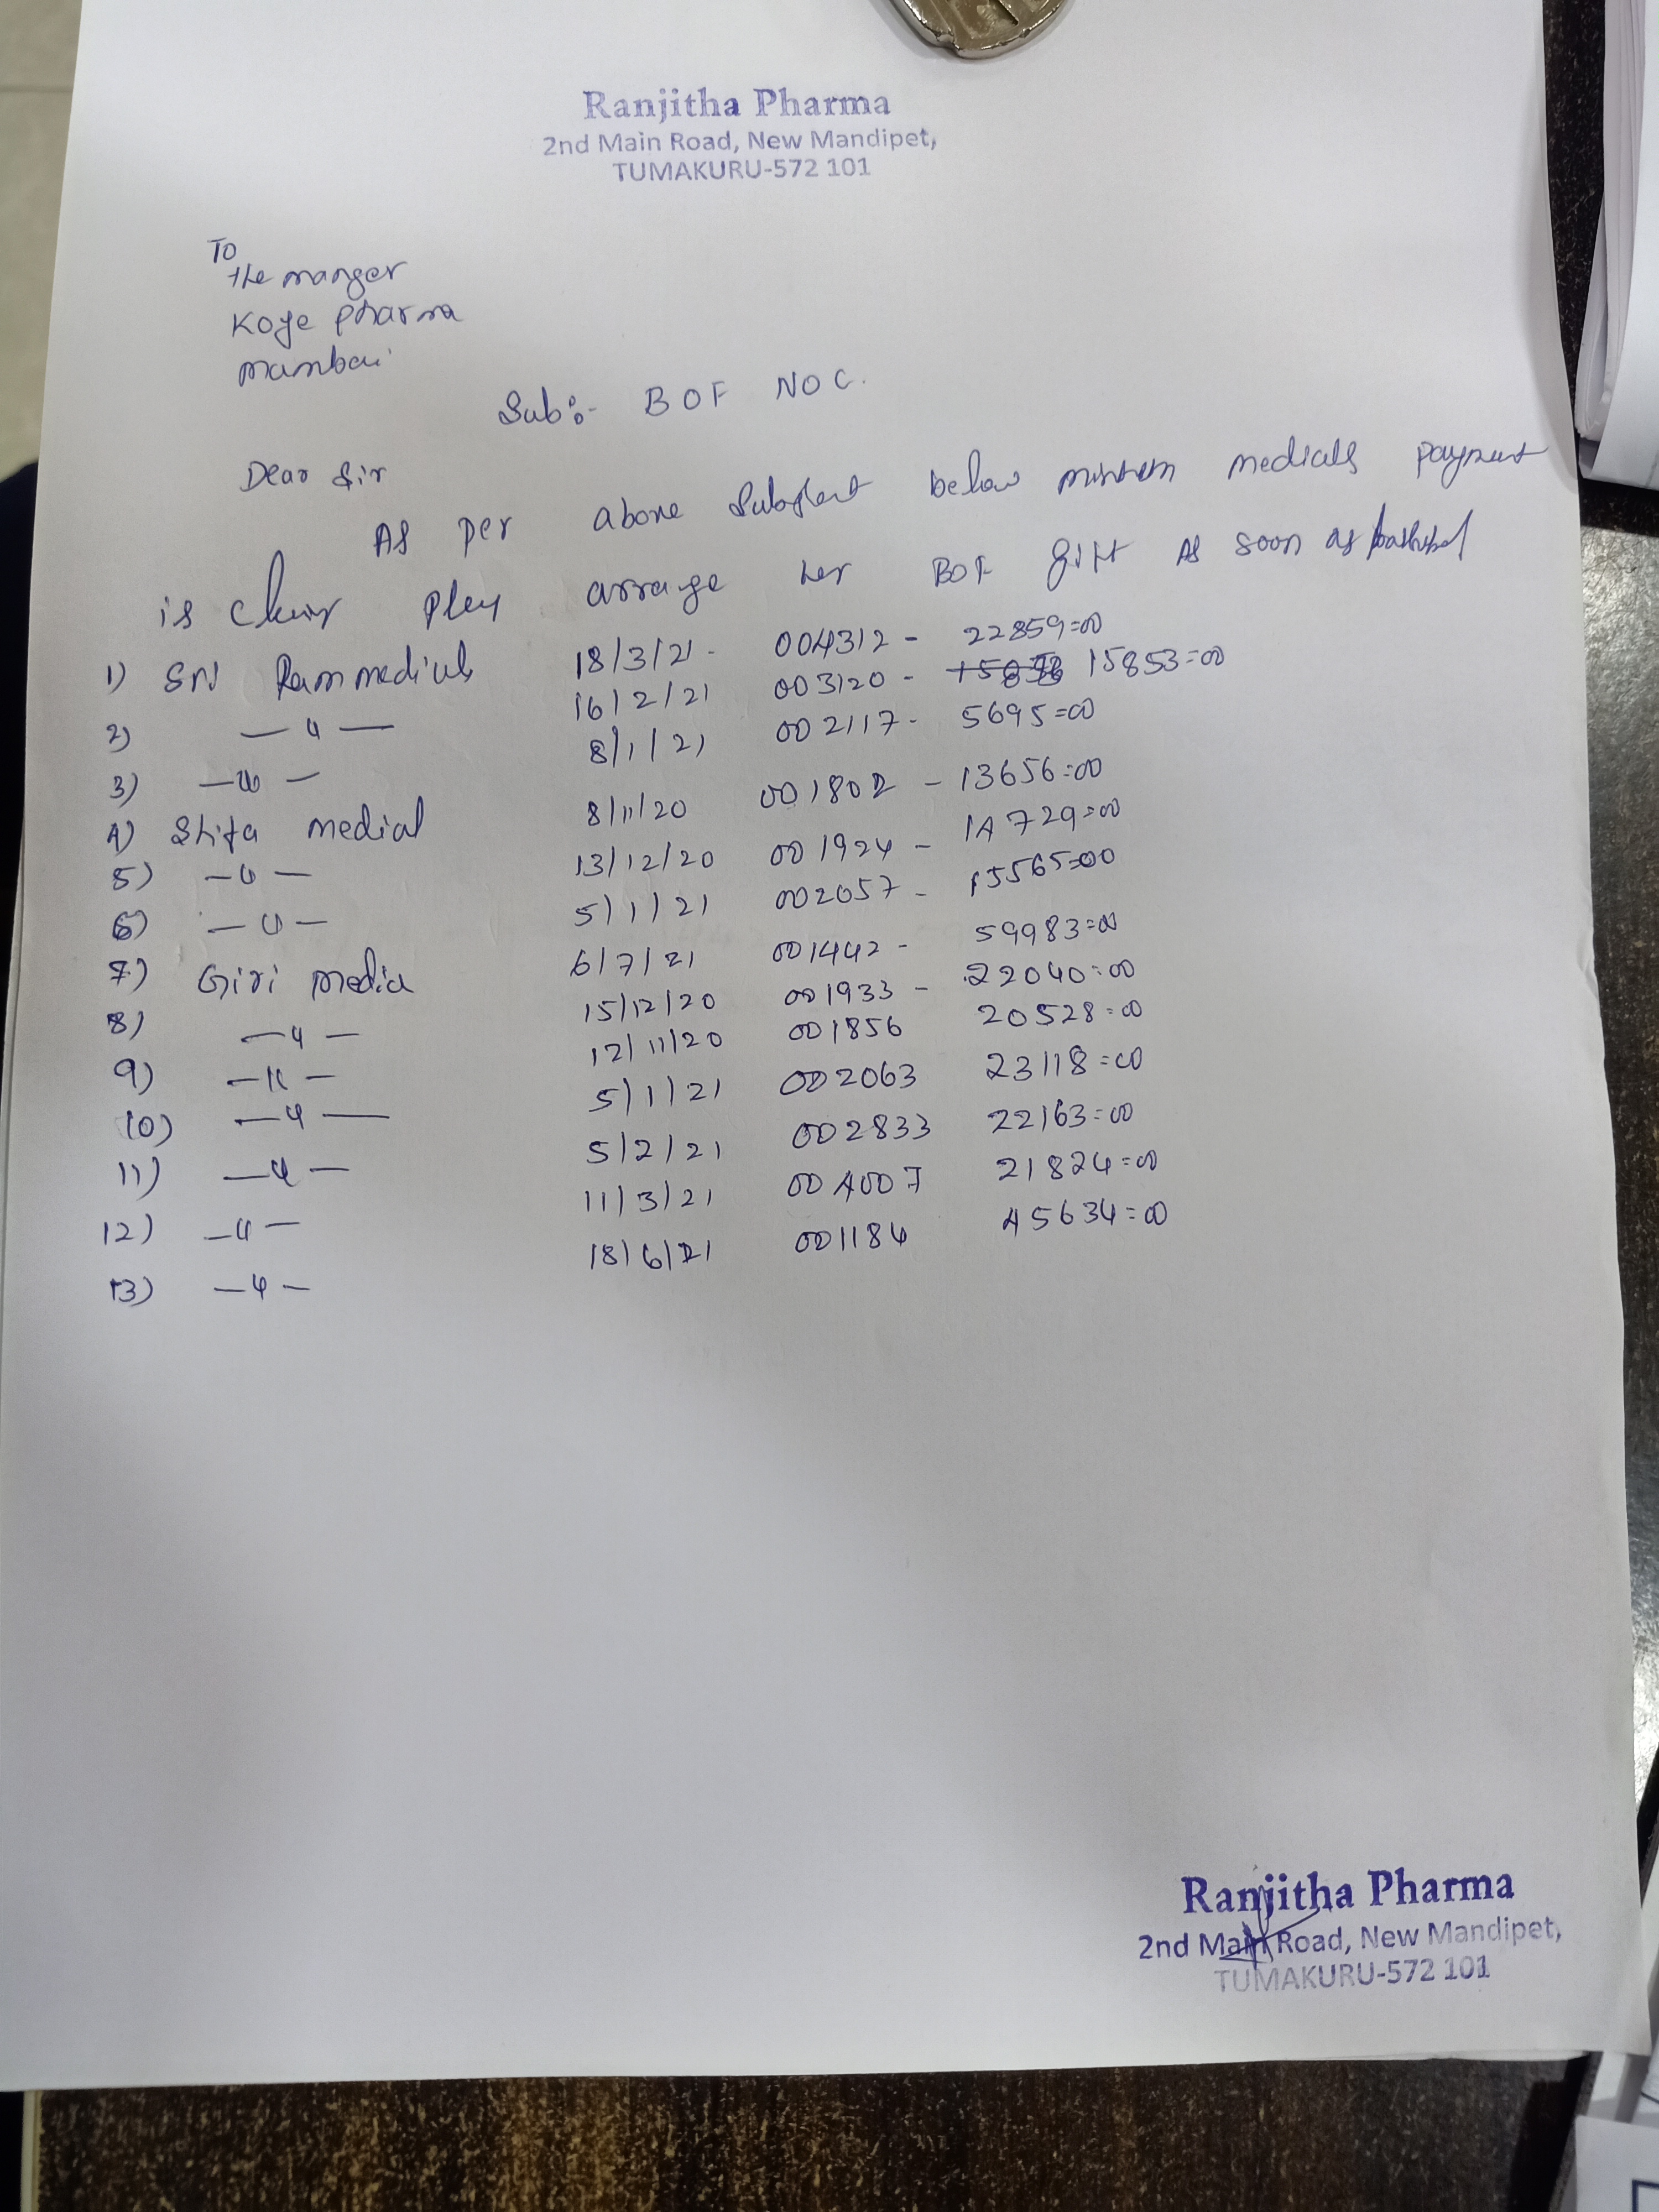 Ranjitha Pharma
2nd Main Road, New Mandipet,
TUMAKURU-572 101
To
the manger
Koye pharma
mumbai
Sub:- BOF NOC.
Dear Sir
As per above below medicals payment
is arrange her BOF gift As soon as
1) Sri Ram medicals 18/3/21 - 004312 - 22859=00
2) — 〃 — 16/2/21 003120 - 15853=00
3) — 〃 — 8/1/21 002117 - 5695=00
4) Shifa medical 8/11/20 001802 - 13656=00
5) — 〃 — 13/12/20 001924 - 14729=00
6) — 〃 — 5/1/21 002057 - 15565=00
7) Giri medic 6/7/21 001442 - 59983=00
8) — 〃 — 15/12/20 001933 - 22040=00
9) — 〃 — 12/11/20 001856 20528=00
10) — 〃 — 5/1/21 002063 23118=00
11) — 〃 — 5/2/21 002833 22163=00
12) — 〃 — 11/3/21 004007 21824=00
13) — 〃 — 18/6/21 001184 45634=00
Ranjitha Pharma
2nd Main Road, New Mandipet,
TUMAKURU-572 101